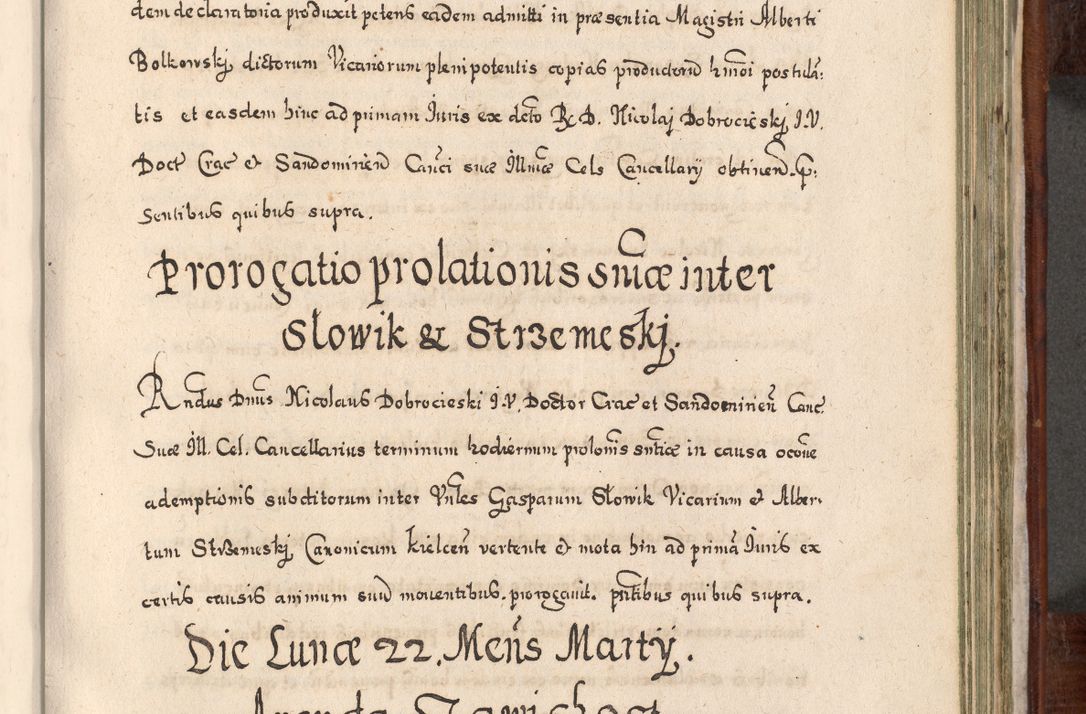 dem declaratoria produxit petens eadem admitti in præsentia Magistri Alberti
Bolkowskj dictorum Vicariorum plenipotentis copias productorũ hmõi postulã:
tis et easdem hinc ad primam Juris ex dcto R. D. Nicolaj Dobrocieskj J. V.
Doct Crac et Sandomirieñ Canci suæ Illmæ Cels Cancellarij obtineñ. p̃:
sentibus quibus supra.
Prorogatio prolationis sniæ inter
Slowik & Strzemeskj.
Rndus Dnus Nicolaus Dobrocieski J. V. Doctor Crac et Sandomirieñ Canc.
Suæ Ill. Cel. Cancellarius terminum hodiernum prolonis sntiæ in causa occõne
ademptionis subditorum inter Vnles Gasparum Slowik Vicarium et Alber-
tum Strzemeskj Canonicum Kielceñ vertente et mota hin ad primã Juris ex
certis causis animum suũ mouentibus. prorogauit. pñtibus quibus supra.
Die Lunæ 22. Meñs Martij.